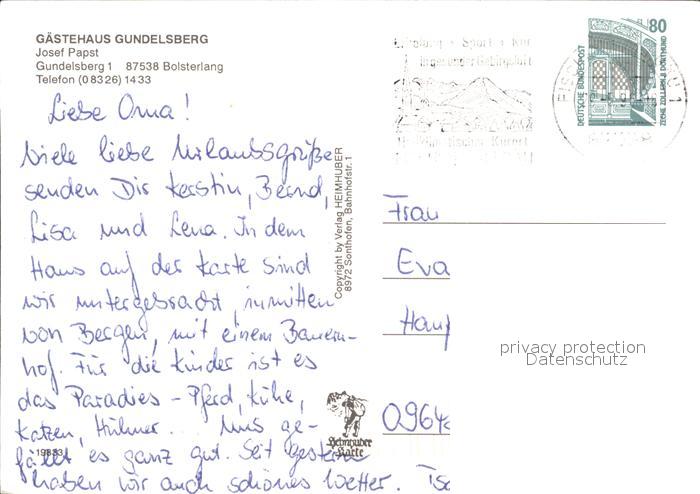 GÄSTEHAUS GUNDELSBERG
Josef Papst
Gundelsberg 1 87538 Bolsterlang
Telefon (08326) 1433
Liebe Oma!
Viele liebe Urlaubsgrüße
senden Dir Kerstin, Bernd,
Lisa und Lena. In dem
Haus auf der Karte sind
wir untergebracht, inmitten
von Bergen, mit einem Bauern-
hof. Für die Kinder ist es
das Paradies - Pferd, Kühe,
Katzen, Hühner... Uns ge-
fällt es ganz gut. Seit gestern
haben wir auch schönes Wetter. Tsc
19833
Copyright by Verlag HEIMHUBER
8972 Sonthofen, Bahnhofstr. 1
Heimhuber
Karte
Erholung · Sport · Kur
Kurort
80
DEUTSCHE BUNDESPOST
ZECHE ZOLLERN II DORTMUND
FISC
1
Frau
Eva
Hau
0964
privacy protection
Datenschutz